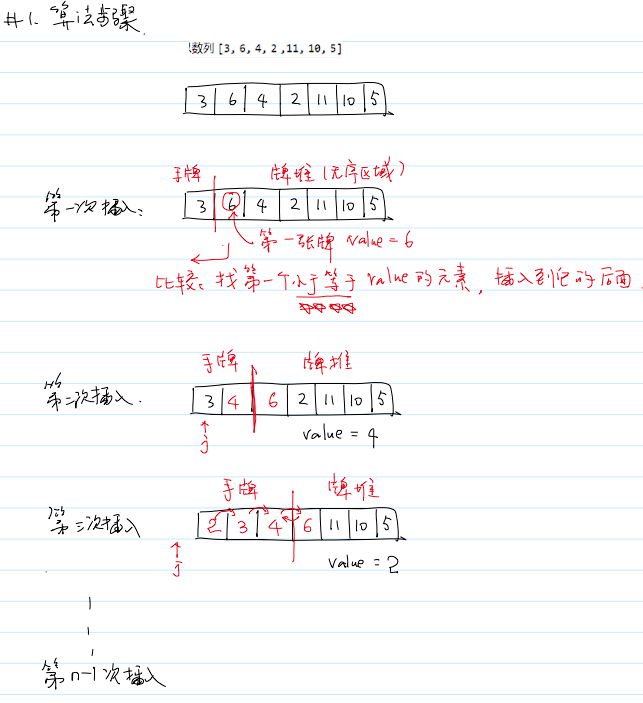 #1. 算法步骤
数列 [3, 6, 4, 2 ,11, 10, 5]
3 6 4 2 11 10 5
手牌 牌堆（无序区域）
第一次插入： 3 6 4 2 11 10 5
j 第一张牌 value = 6
比较：找第一个小于等于 value 的元素，插入到它的后面.
手牌 牌堆
第二次插入. 3 4 6 2 11 10 5
j value = 4
手牌 牌堆
第三次插入 2 3 4 6 11 10 5
j value = 2
第 n-1 次插入